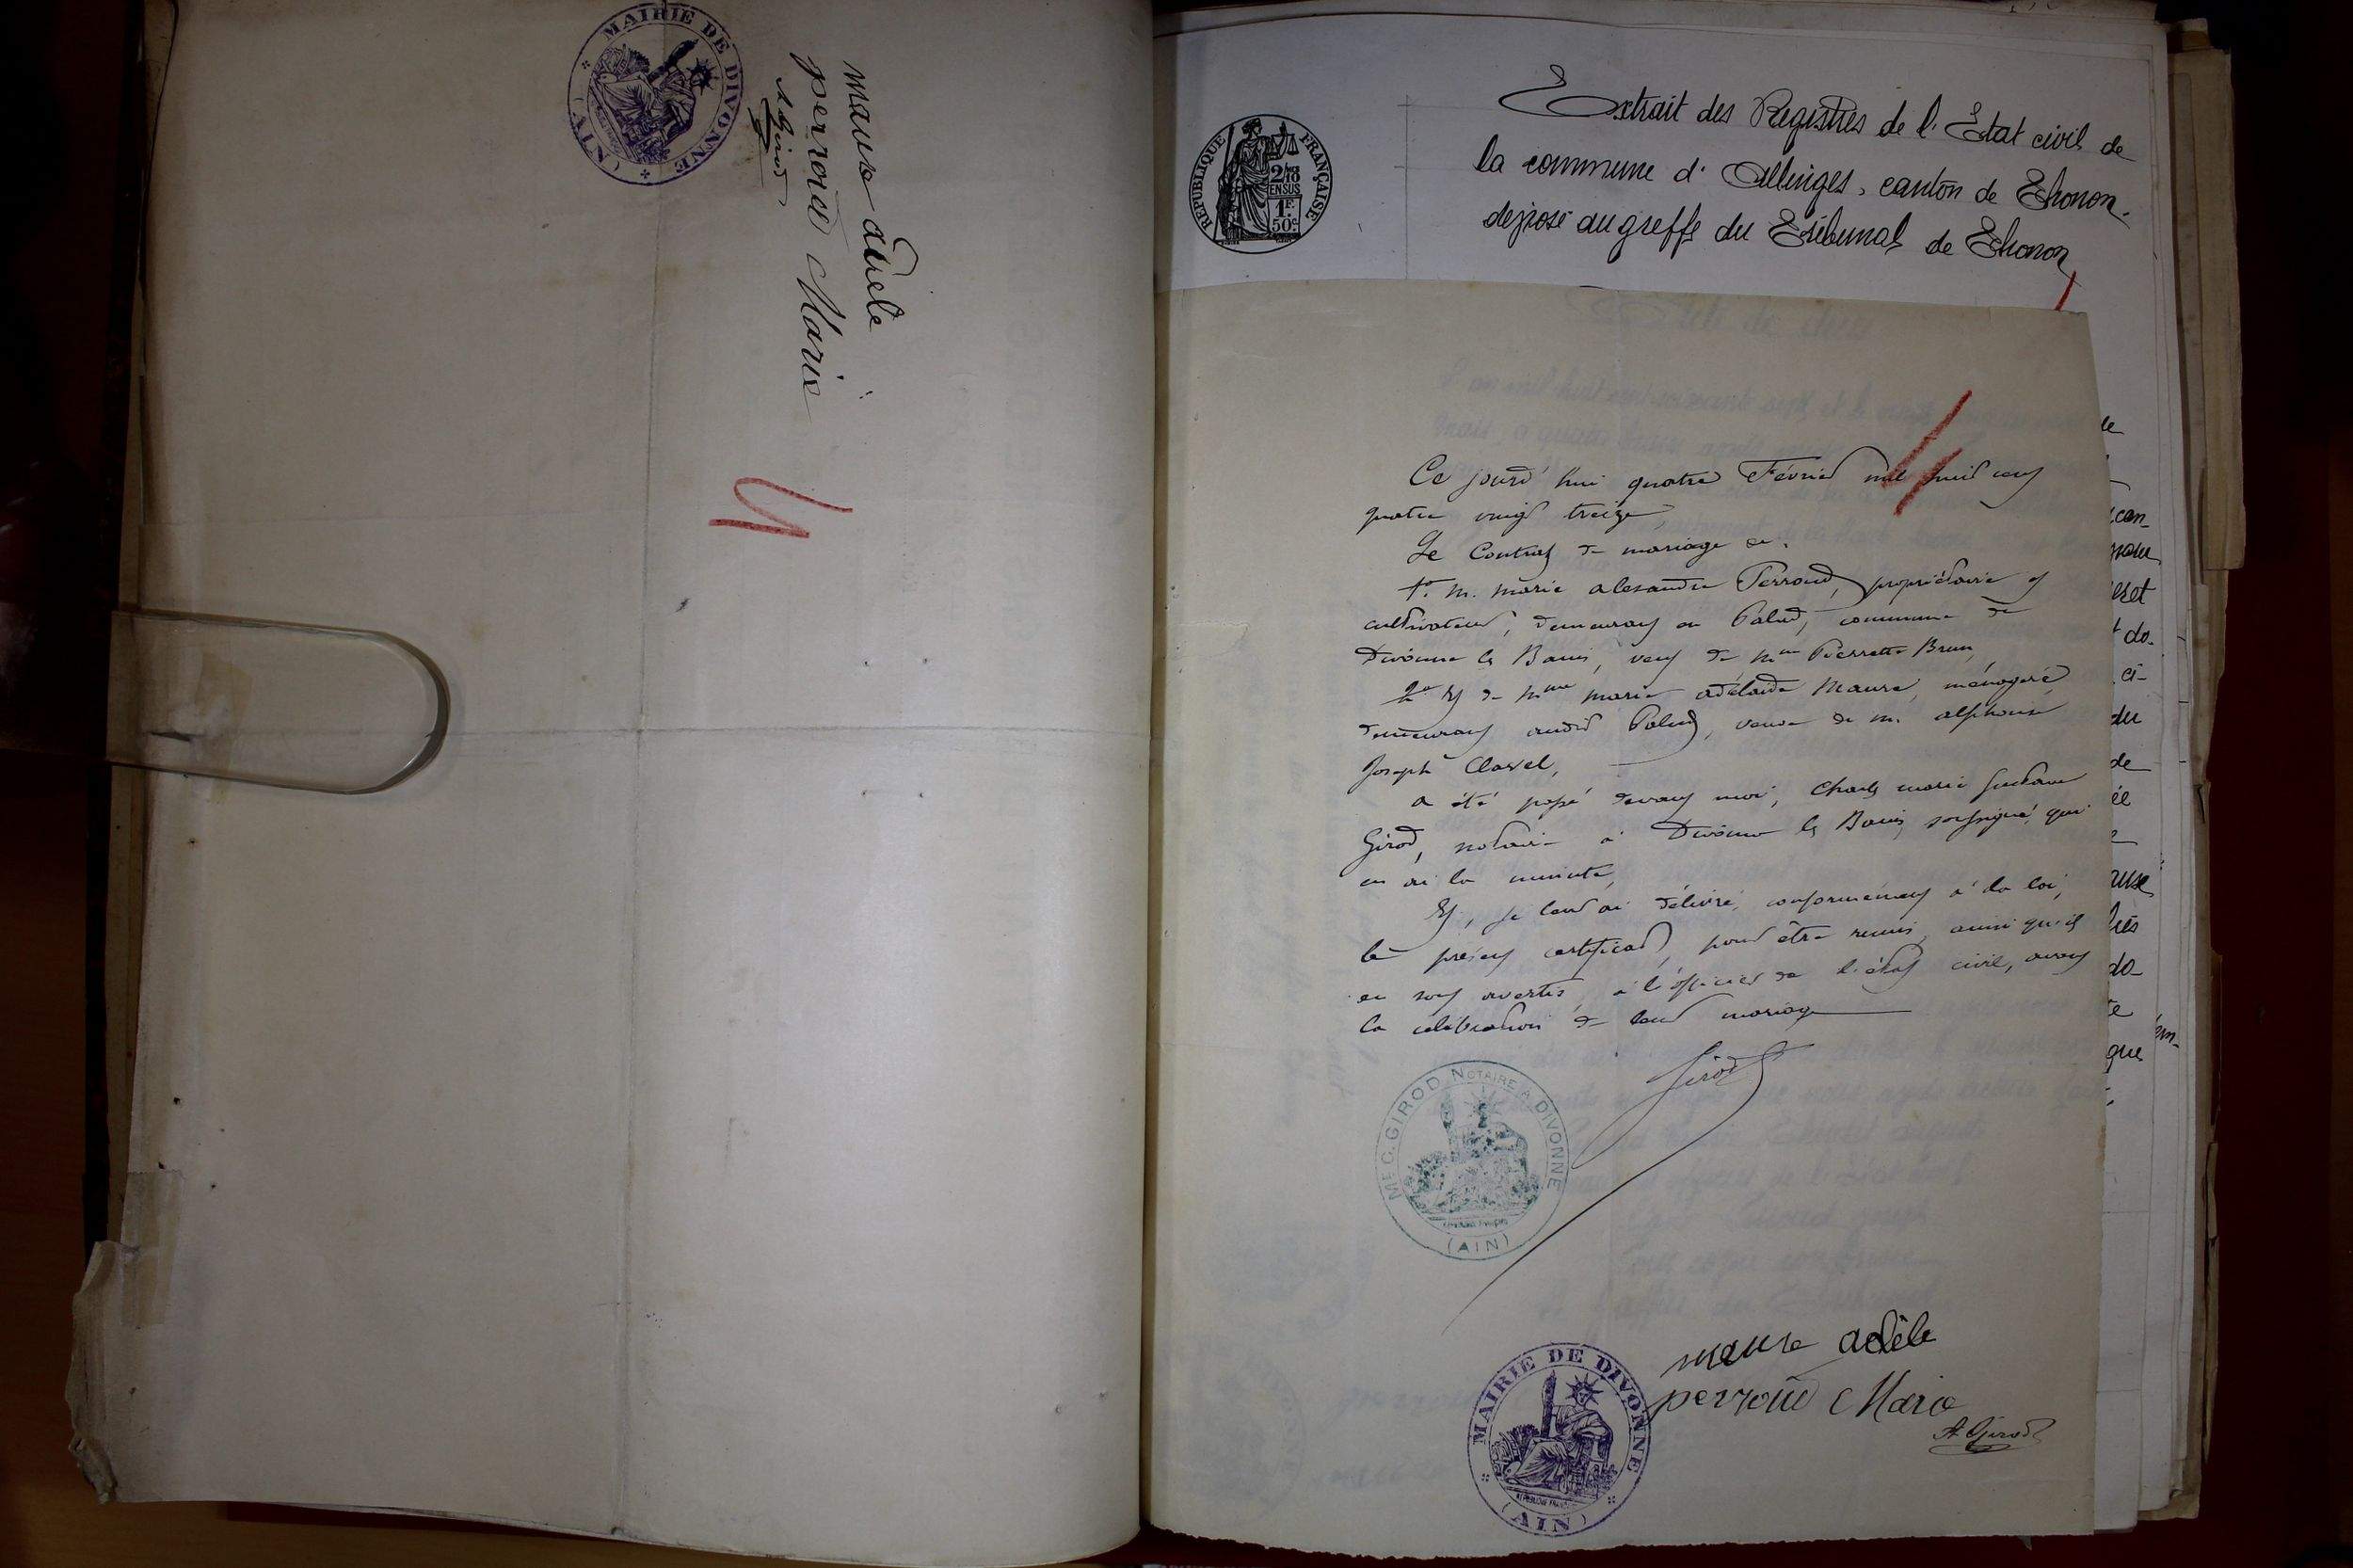 MAIRIE DE DIVONNE
(AIN)
maure adele
perroud Marie
A Girod
4
Extrait des Registres de l'Etat civil de
la commune d'Allinges, canton de Thonon.
déposé au greffe du Tribunal de Thonon
REPUBLIQUE FRANÇAISE
2/10
EN SUS
1F.
50c
4
Ce jourd'hui quatre Février mil huit cent
quatre vingt treize,
Le Contrat de mariage de.
1º. M. marie alexandre Perroud, propriétaire et
cultivateur, demeurant au Palud, commune de
Divonne les Bains, veuf de Mme Pierrette Brun,
2º Et de Mme marie adélaïde Maure, ménagère,
demeurant audit Palud, veuve de M. alphonse
Joseph Clavel,
a été passé devant moi, Charles marie Gustave
Girod, notaire à Divonne les Bains, soussigné, qui
en ai la minute,
Et, je leur ai délivré, conformément à la loi,
le présent certificat, pour être remis, ainsi qu'ils
en sont avertis, à l'officier de l'état civil, avant
la célébration de leur mariage
Girod
ME C. GIROD NOTAIRE A DIVONNE
(AIN)
maure adèle
perroud Marie
A. Girod
MAIRIE DE DIVONNE
(AIN)